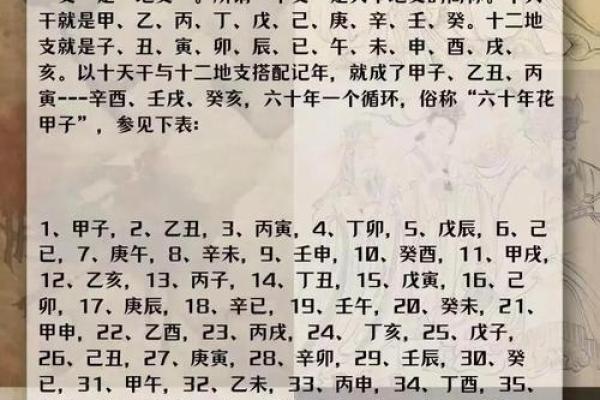 干就是甲、乙、丙、丁、戊、己、庚、辛、壬、癸。十二地
支就是子、丑、寅、卯、辰、已、午、未、申、酉、戌、
亥。以十天干与十二地支搭配记年，就成了甲子、乙丑、丙
寅---辛酉、壬戌、癸亥，六十年一个循环，俗称“六十年花
甲子”，参见下表：
1、甲子，2、乙丑，3、丙寅，4、丁卯，5、戊辰，6、己
已，7、庚午，8、辛未，9、壬申，10、癸酉，11、甲戌，
12、乙亥，13、丙子，14、丁丑，15、戊寅，16、己
卯，17、庚辰，18、辛已，19、壬午，20、癸未，21、
甲申，22、乙酉，23、丙戌，24、 丁亥，25、戊子，
26、己丑，27、庚寅，28、辛卯，29、壬辰，30、癸
已，31、甲午，32、乙未，33、丙申，34、丁酉，35、